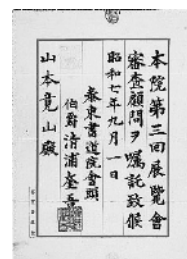 本院第三回展覧會
審査顧問ヲ嘱託致候
昭和七年九月一日
泰東書道院會頭
伯爵清浦奎吾
山本竟山殿